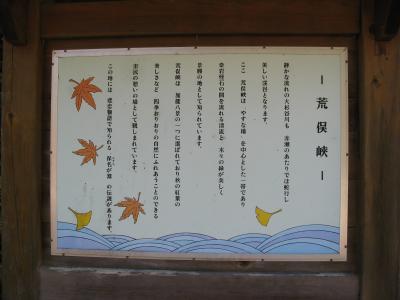 ― 荒俣峡 ―
静かな流れの大杉谷川も 赤瀬のあたりでは蛇行し
美しい渓谷となります
ここ 荒俣峡は やすな橋 を中心とした一帯であり
奇岩怪石の間を流れる清流と 木々の緑が美しく
景勝の地として知られています。
荒俣峡は 加能八景の一つに選ばれており秋の紅葉の
美しさなど 四季おりおりの自然にふれあうことのできる
市民の憩いの場として親しまれています。
この地には 悲恋物語で知られる 保名が淵 の伝説があります。